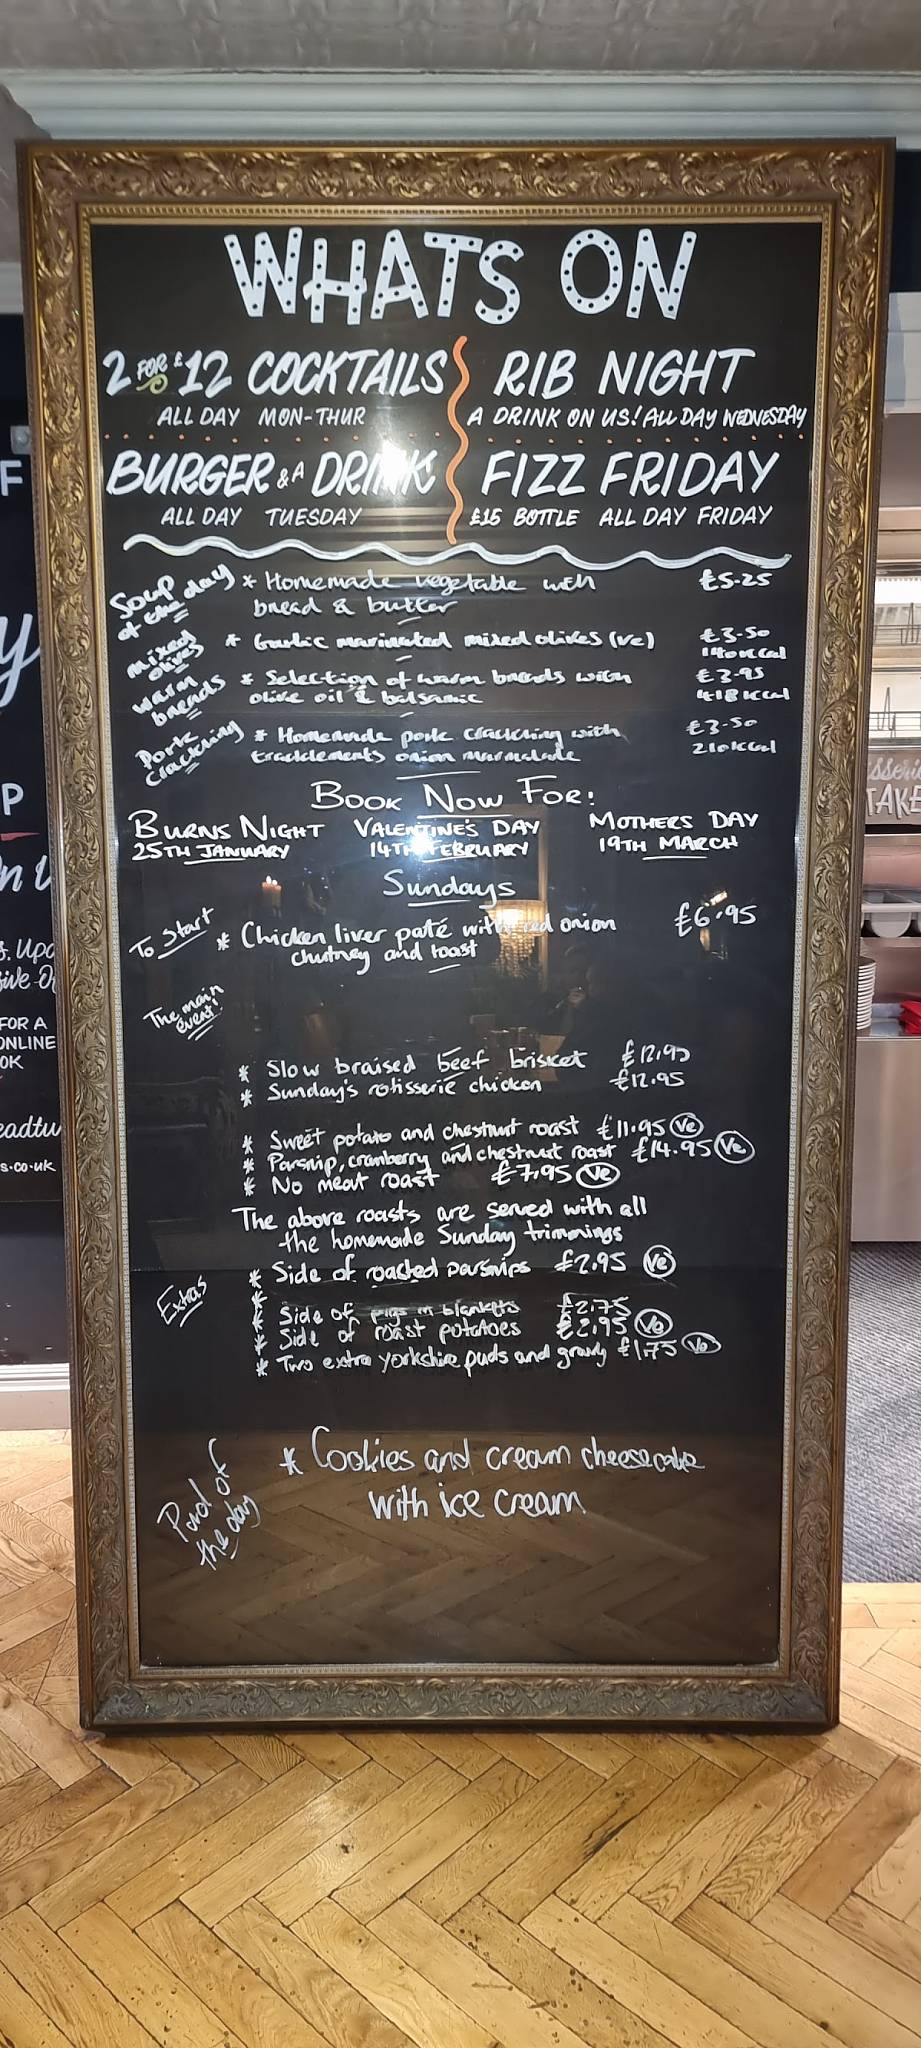 WHATS ON
2 FOR £12 COCKTAILS
ALL DAY MON-THUR
RIB NIGHT
A DRINK ON US! ALL DAY WEDNESDAY
BURGER & A DRINK
ALL DAY TUESDAY
FIZZ FRIDAY
£15 BOTTLE ALL DAY FRIDAY
Soup
of the day
* Homemade vegetable with £5.25
bread & butter
mixed
olives
* Garlic marinated mixed olives (ve) £3.50
140kcal
warm
breads
* Selection of warm breads with £3.95
olive oil & balsamic 418kcal
Pork
crackling
* Homemade pork crackling with £3.50
tracklements onion marmalade 210kcal
BOOK NOW FOR!
BURNS NIGHT
25TH JANUARY
VALENTINE'S DAY
14TH FEBRUARY
MOTHERS DAY
19TH MARCH
Sundays
To Start
* Chicken liver paté with red onion £6.95
chutney and toast
The main
event!
* Slow braised beef brisket £12.95
* Sunday's rotisserie chicken £12.95
* Sweet potato and chestnut roast £11.95 Ve
* Parsnip, cranberry and chestnut roast £14.95 Ve
* No meat roast £7.95 Ve
The above roasts are served with all
the homemade Sunday trimmings
Extras
* Side of roasted parsnips £2.95 Ve
*
* Side of pigs in blankets £2.75
* Side of roast potatoes £2.95 Ve
* Two extra yorkshire puds and gravy £1.75 Ve
Pud of
the day
* Cookies and cream cheesecake
with ice cream
F
y
P
FOR A
ONLINE
OK
eadtu
s.co.uk
TAKE